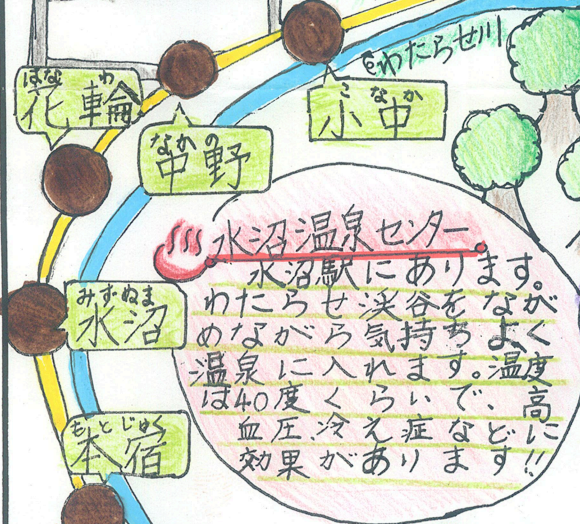 ⑥わたらせ川
こなか
小中
はなわ
花輪
なかの
中野
みずぬま
水沼
もとじゅく
本宿
水沼温泉センター
水沼駅にあります。
わたらせ渓谷をなが
めながら気持ちよく
温泉に入れます。温度
は40度くらいで、高
血圧、冷え症などに
効果があります!!